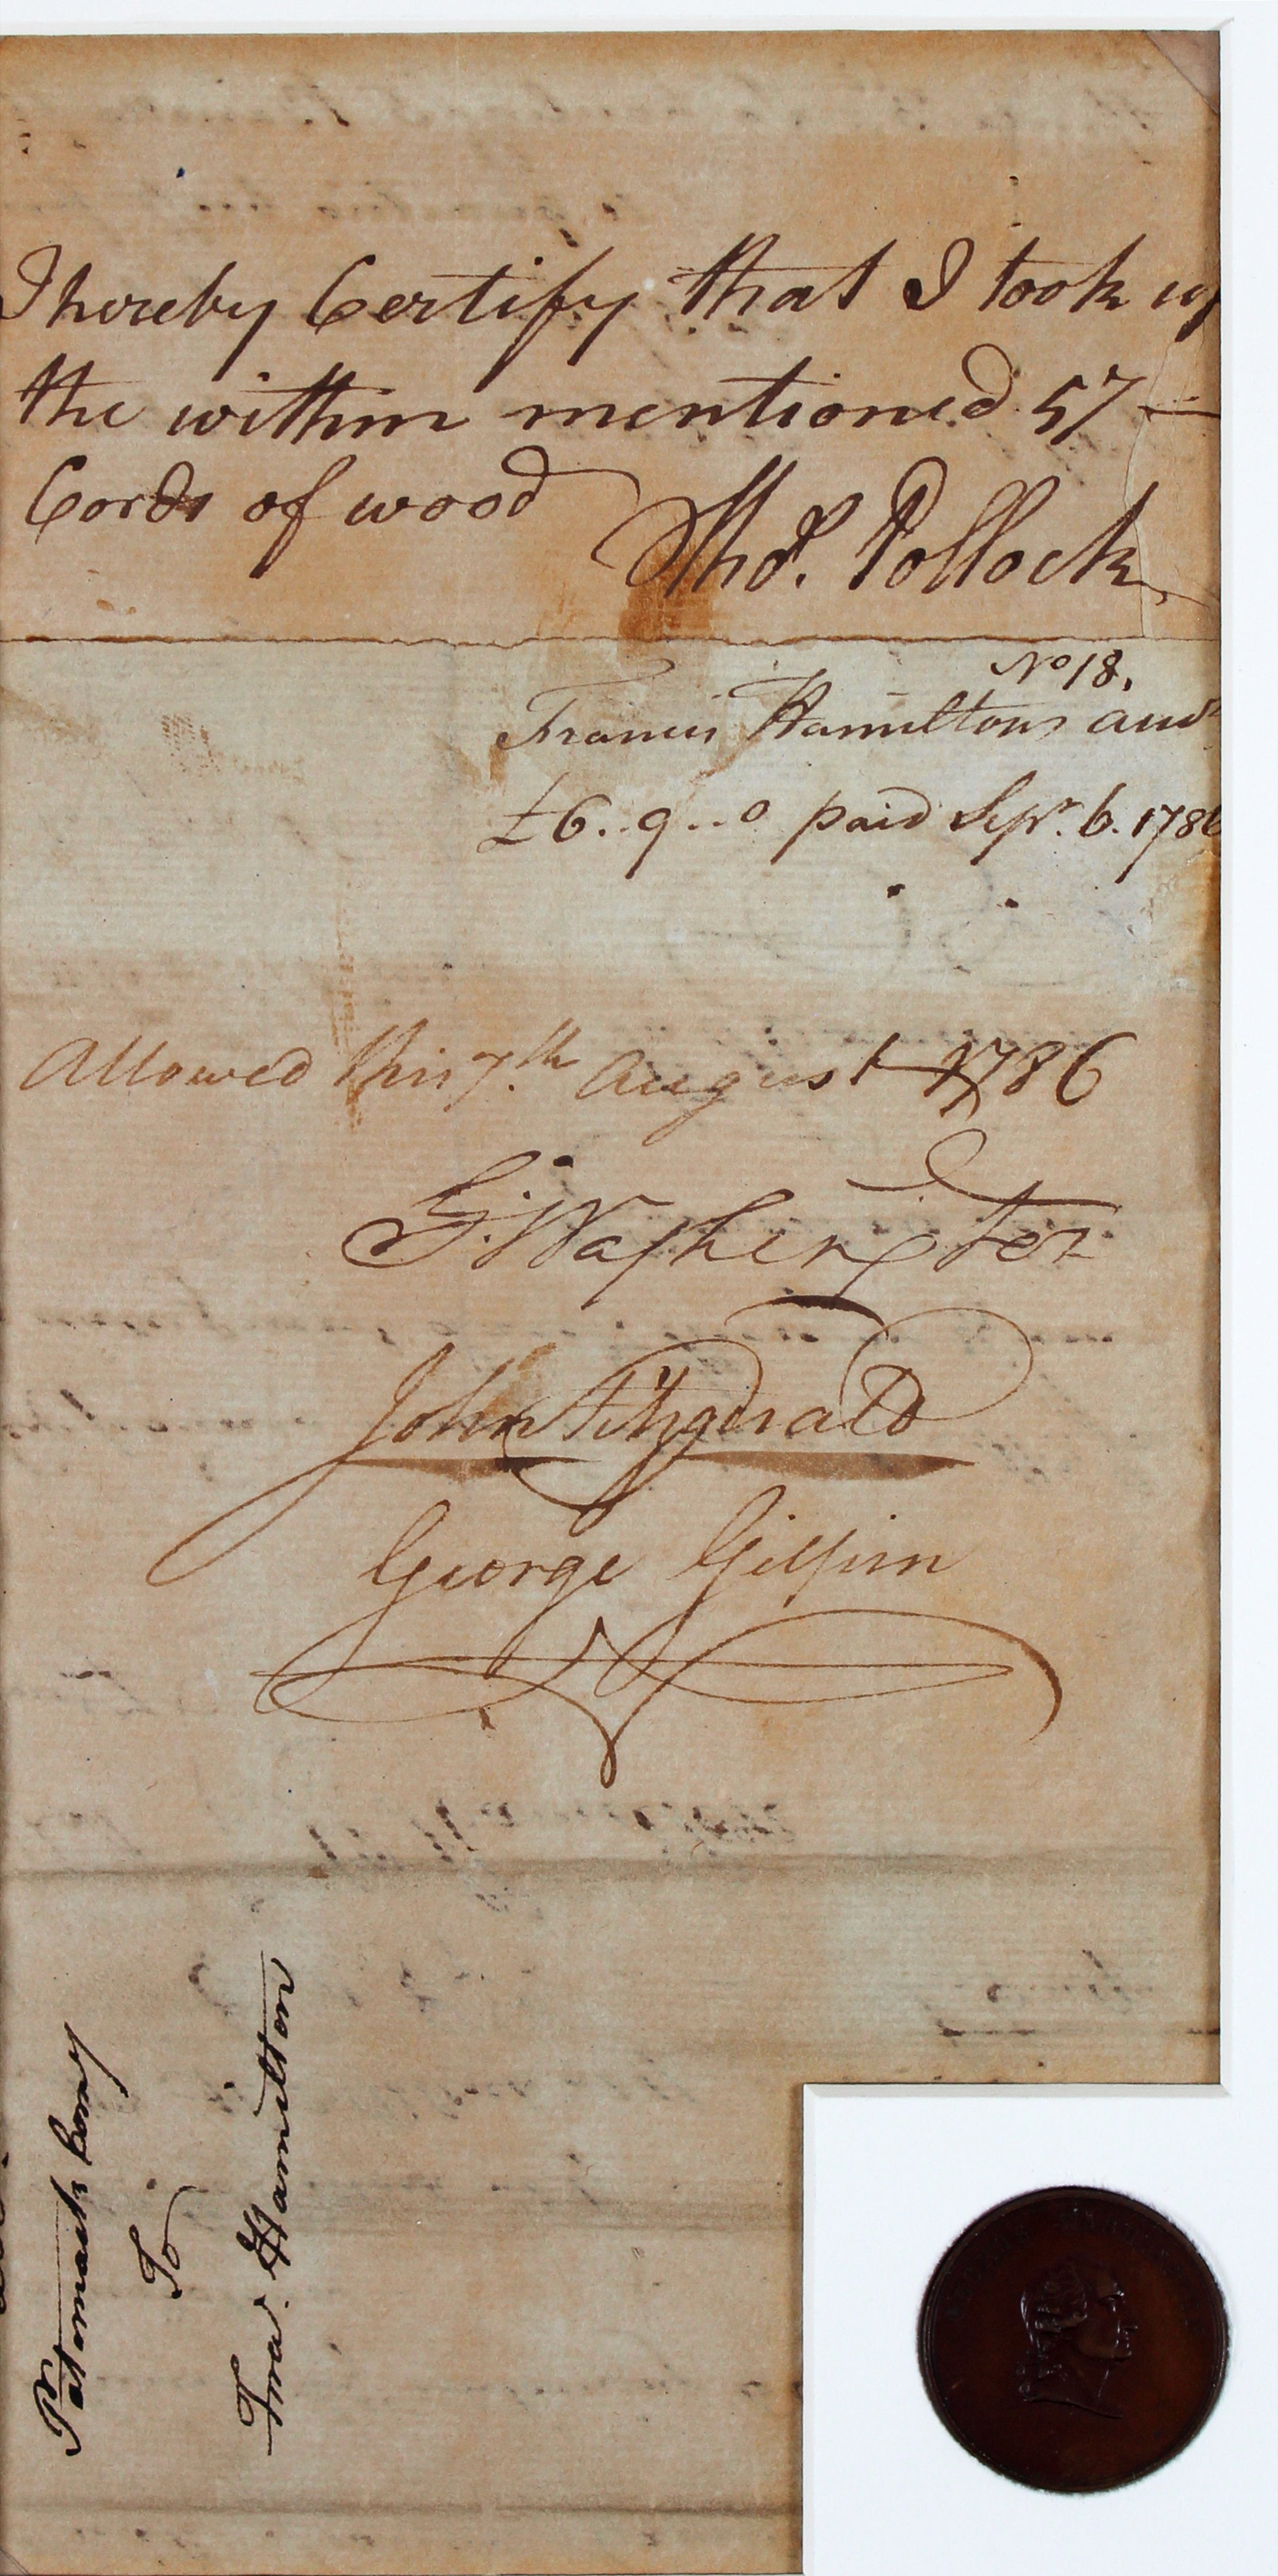 I hereby Certify that I took up
the within mentioned 57 —
Cords of wood Thos. Pollock
No 18.
Francis Hamiltons
£6..9..0 paid Sepr. 6. 1786
Allowed this 7.th August 1786
G. Washington
John Fitzgerald
George Gilpin
Potomack Comy
To
Fras. Hamilton